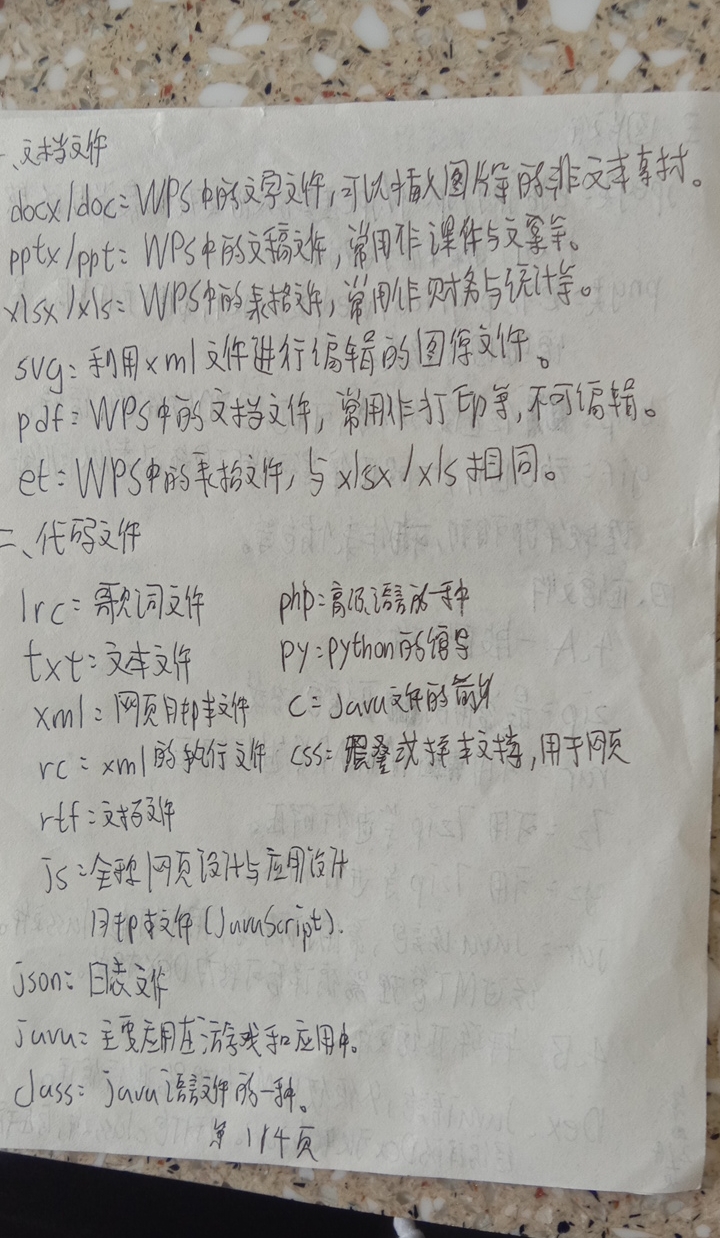 一、文档文件
docx/doc=WPS中的文字文件,可以插入图片等的非文本素材。
pptx/ppt=WPS中的文稿文件,常用作课件与文案等。
xlsx/xls=WPS中的表格文件,常用作财务与统计等。
svg=利用xml文件进行编辑的图像文件。
pdf=WPS中的文档文件,常用作打印等,不可编辑。
et=WPS中的表格文件,与xlsx/xls相同。
二、代码文件
lrc=歌词文件 php=高级语言的一种
txt=文本文件 py=python的编导
xml=网页脚本文件 c=java文件的前身
rc=xml的执行文件 css=层叠式样本文档,用于网页
rtf=文档文件
js=全称网页设计与应用设计
脚本文件(JavaScript).
json=日志文件
java=主要应用在游戏和应用中。
class=java语言文件的一种。
第1/4页